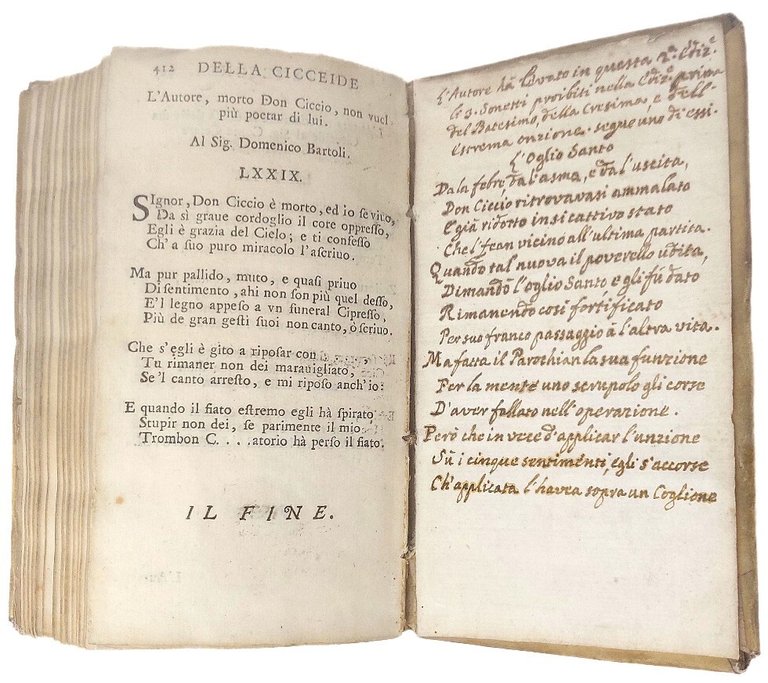 412 DELLA CICCEIDE
L'Autore, morto Don Ciccio, non vuol
più poetar di lui.
Al Sig. Domenico Bartoli.
LXXIX.
SIgnor, Don Ciccio è morto, ed io se viuo,
Da sì graue cordoglio il core oppresso,
Egli è grazia del Cielo; e ti confesso
Ch'a suo puro miracolo l'ascriuo.
Ma pur pallido, muto, e quasi priuo
Di sentimento, ahi non son più quel desso,
E'l legno appeso a vn funeral Cipresso,
Più de gran gesti suoi non canto, ò scriuo.
Che s'egli è gito a riposar con
Tu rimaner non dei marauigliato,
Se'l canto arresto, e mi riposo anch'io:
E quando il fiato estremo egli hà spirato
Stupir non dei, se parimente il mio
Trombon C. . . .atorio hà perso il fiato.
IL FINE.
L'Autore hà levato in questa 2.ª Ediz.e
li 3. Sonetti proibiti nella Ediz.e prima
del Batesimo, della Cresima, e dell'
Estrema onzione. segue uno di essi.
L'Oglio Santo
Da la febre, da l'asma, e da l'uscita,
Don Ciccio ritrovavasi ammalato
E già ridotto in sì cattivo stato
Che l'fean vicino all'ultima partita.
Quando tal nuova il poverello udita,
Dimandò l'oglio Santo e gli fù dato
Rimanendo così fortificato
Per suo franco passaggio à l'altra vita.
Ma fatta il Parochian la sua funzione
Per la mente uno scrupolo gli corse
D'aver fallato nell'operazione.
Però che in vece d'applicar l'unzione
Sù i cinque sentimenti, egli s'accorse
Ch'applicata l'havea sopra un Coglione